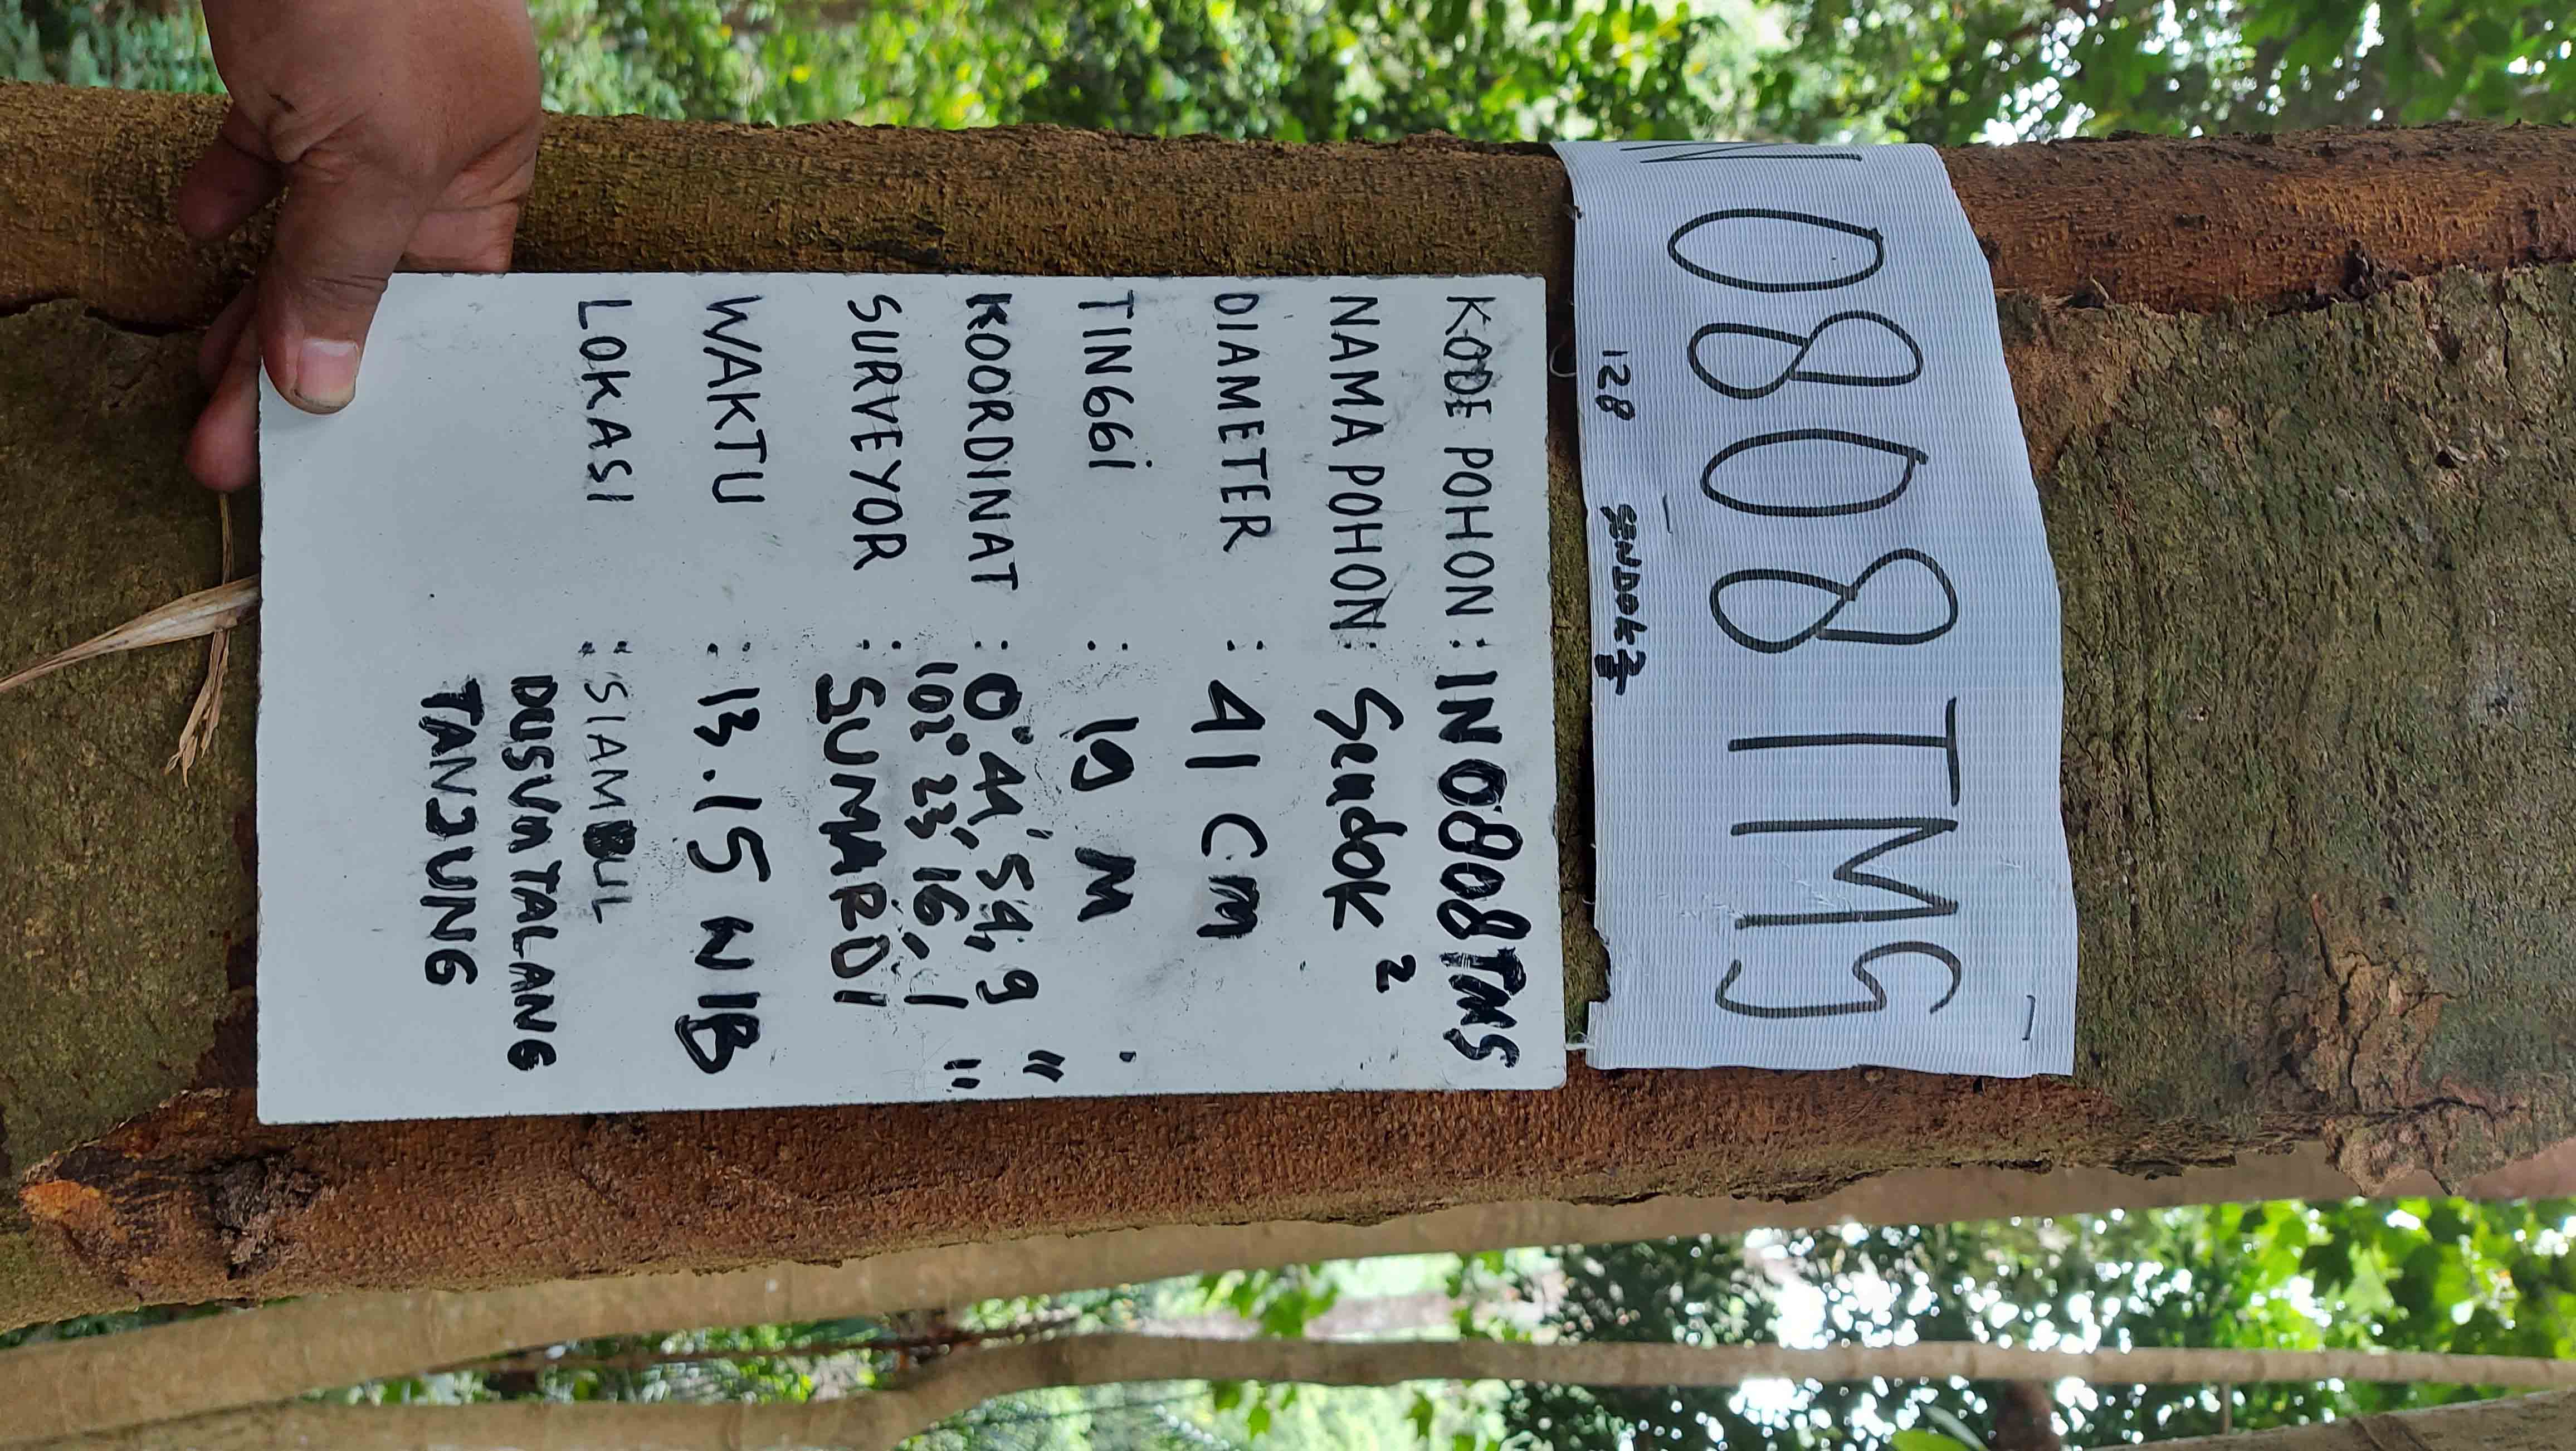 N 0808 TMG
128 SENDOK 2
KODE POHON : IN0808TMG
NAMA POHON : Sendok 2
DIAMETER : 41 Cm
TINGGI : 19 M
KOORDINAT : 0° 44' 54,9"
102° 23' 16,1"
SURVEYOR : SUMARDI
WAKTU : 13.15 WIB
LOKASI : SIAMBUL
DUSUN TALANG
TANJUNG